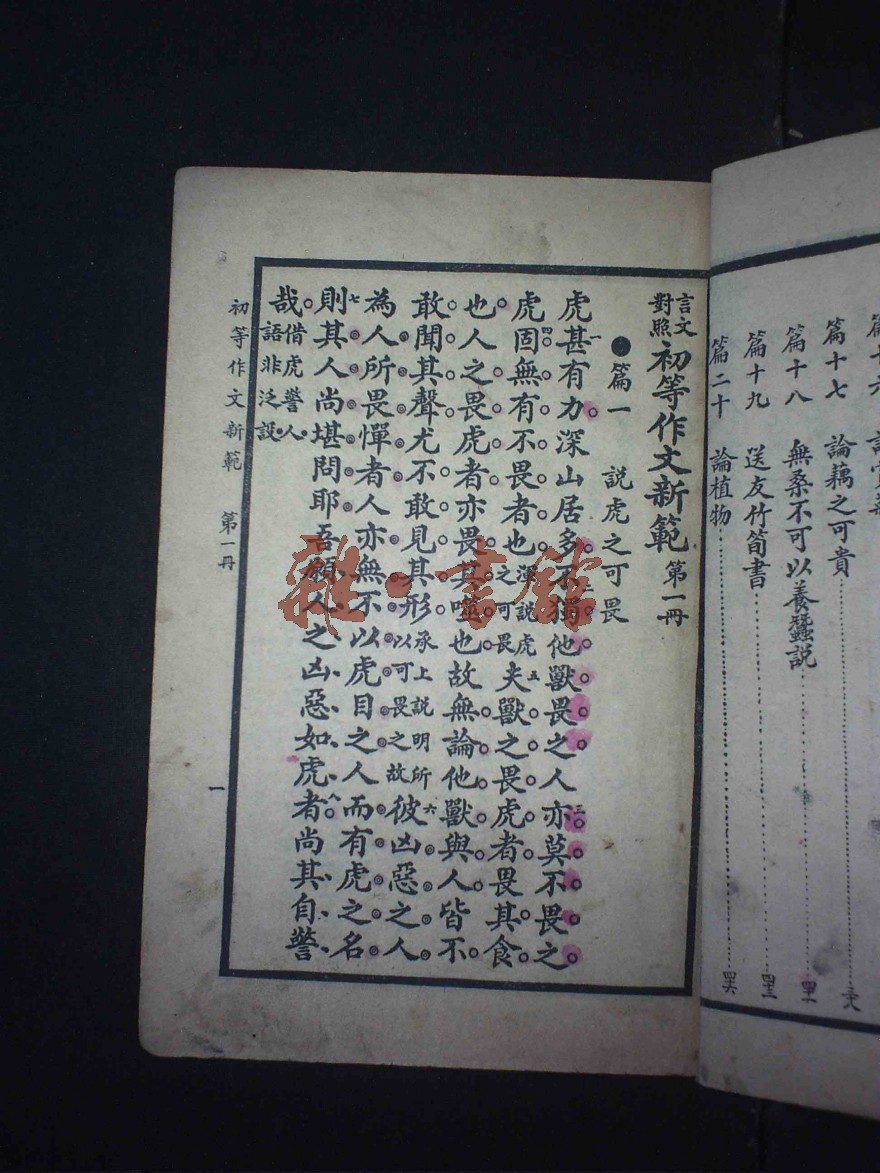 篇十七 論藕之可貴
篇十八 無桑不可以養蠶說
篇十九 送友竹筍書 四三
篇二十 論植物 四六
言文對照 初等作文新範 第一冊
●篇一 說虎之可畏
虎甚一有力。深山居多。不二獨他獸畏之。人亦三莫不畏之。
虎四固無有不畏者也。渾說虎之可畏夫五獸之畏虎者。畏其食
也。人之畏虎者。亦畏其噬也。故無論他獸與人。皆不
敢聞其聲。尤不敢見其形。承上說明所以可畏之故彼六凶惡之人。
為人所畏憚者。人亦無不以虎目之。人而有虎之名。
則七其人尚堪問耶。吾願人之凶惡如虎者。八尚其自警
哉。借虎警人語非泛設
初等作文新範 第一冊
一
雜·書館